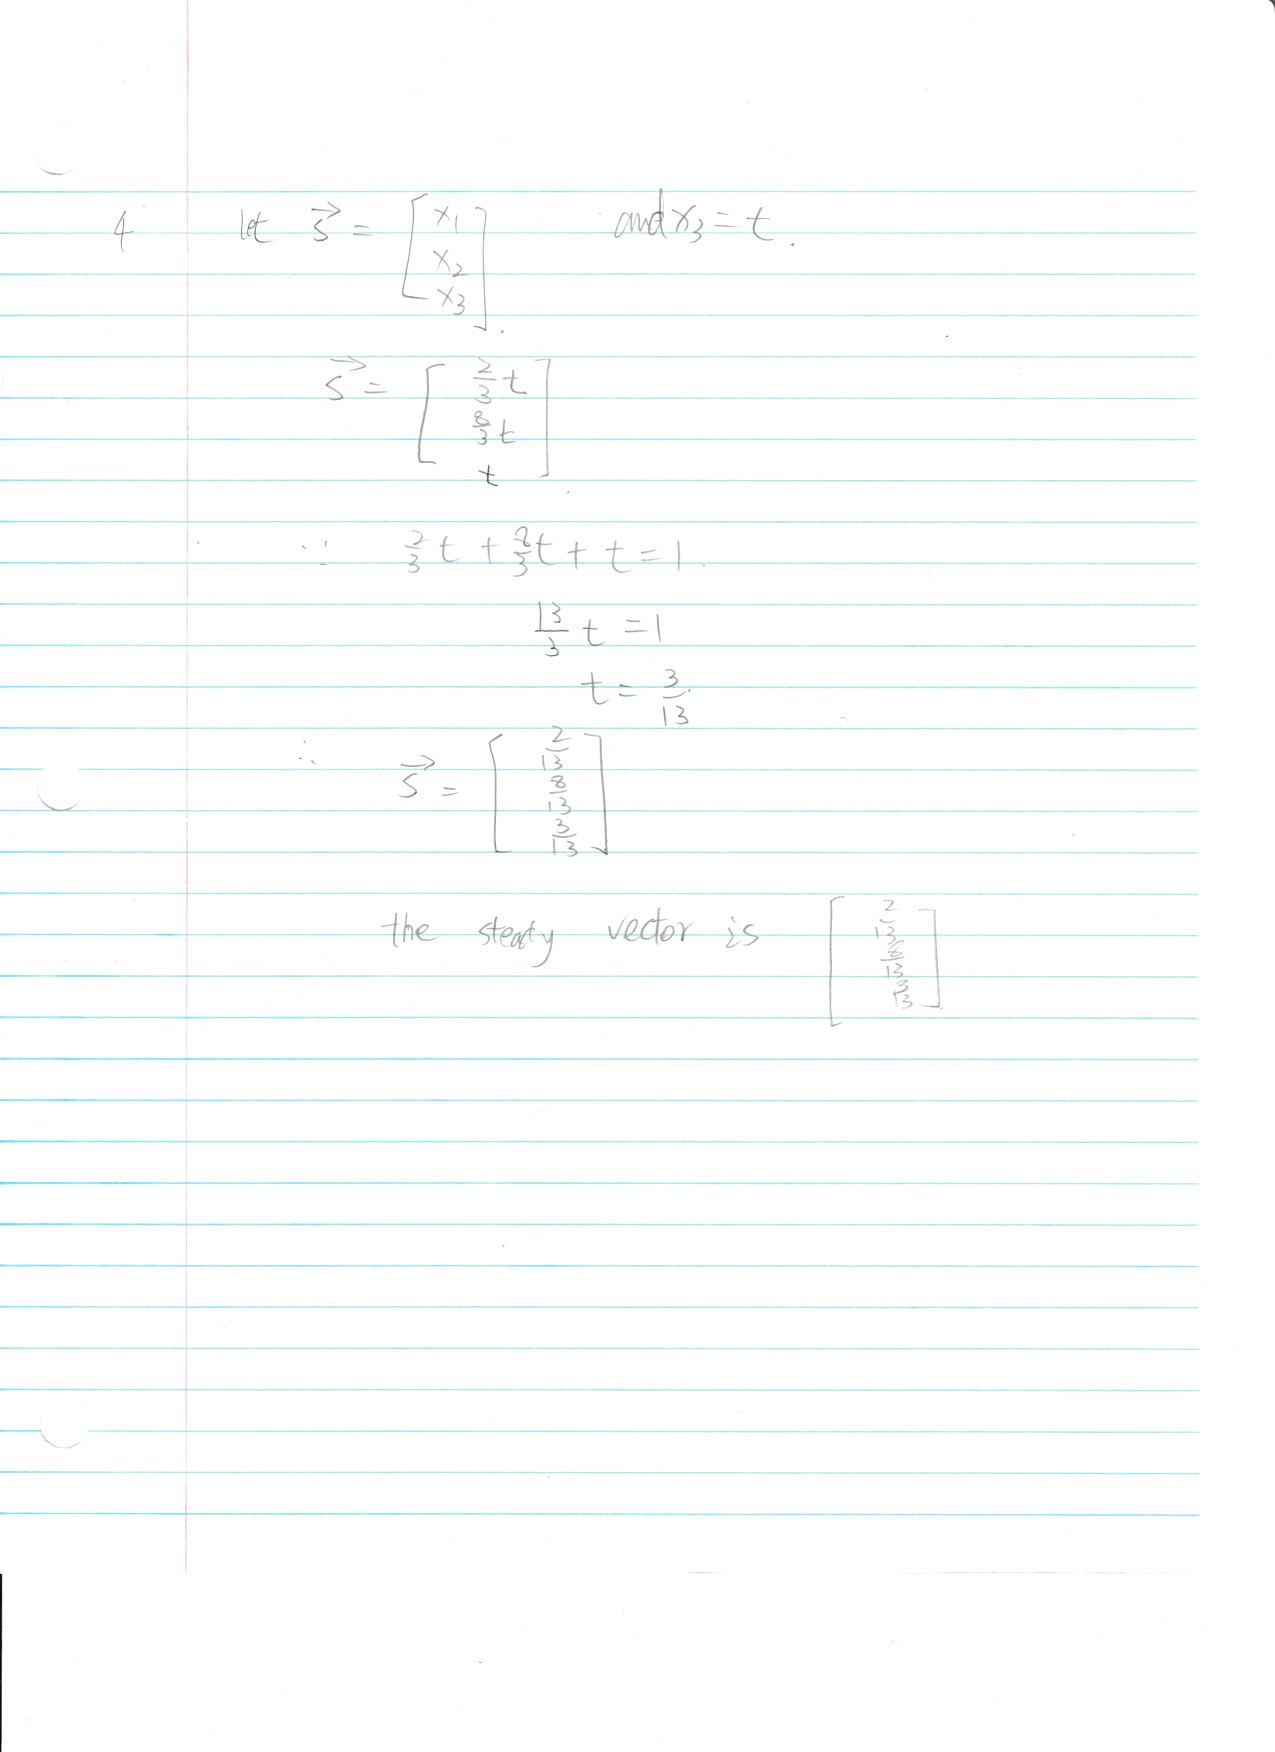 4 let s⃗ = [x₁ x₂ x₃]. and x₃ = t.
s⃗ = [2/3 t 8/3 t t]
∵ 2/3 t + 8/3 t + t = 1.
13/3 t = 1
t = 3/13.
∴ s⃗ = [2/13 8/13 3/13]
the steaty vector is [2/13 8/13 3/13]